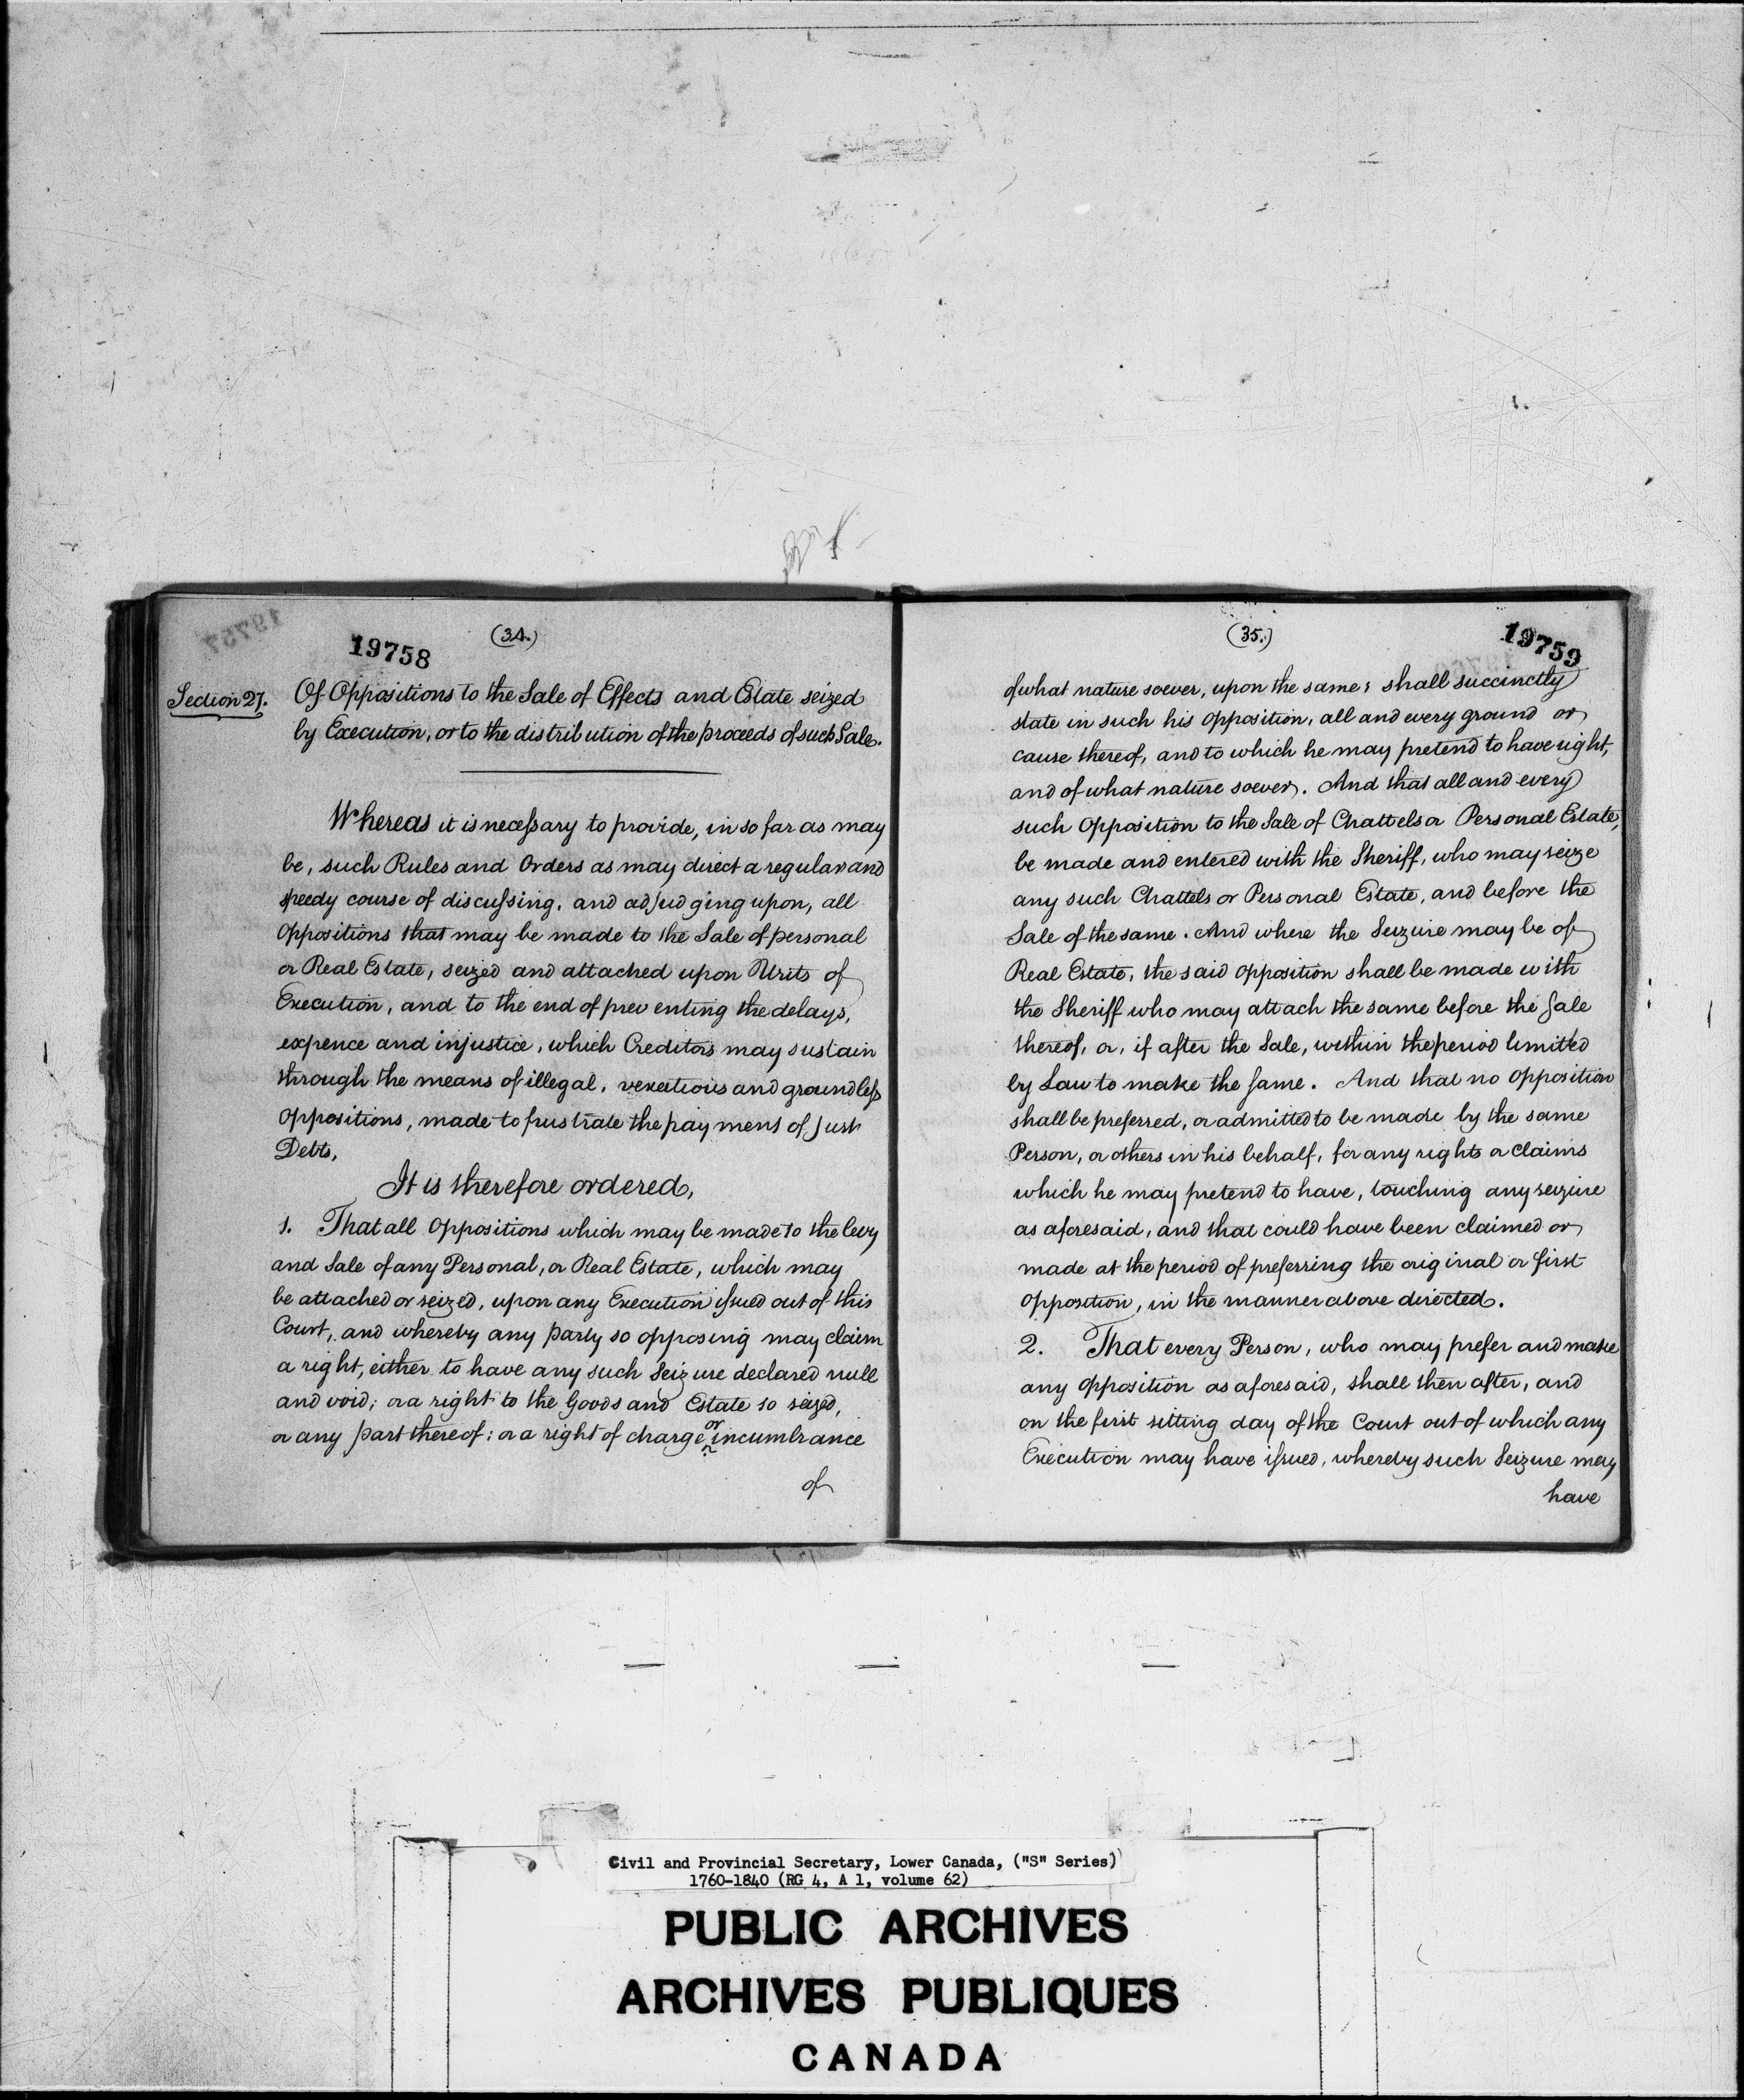 (34.)
19758
Section 27. Of Oppositions to the Sale of Effects and Estate seized
by Execution, or to the distribution of the proceeds of such Sale.
Whereas it is necessary to provide, in so far as may
be, such Rules and Orders as may direct a regular and
speedy course of discussing, and adjudging upon, all
oppositions that may be made to the Sale of personal
or Real Estate, seized and attached upon Writs of
Execution, and to the end of preventing the delays,
expence and injustice, which Creditors may sustain
through the means of illegal, vexatious and groundless
oppositions, made to frustrate the payment of just
Debts,
It is therefore ordered,
1. That all Oppositions which may be made to the levy
and Sale of any Personal, or Real Estate, which may
be attached or seized, upon any Execution issued out of this
Court, and whereby any party so opposing may claim
a right, either to have any such Seizure declared null
and void; or a right to the Goods and Estate so seized,
or any part thereof: or a right of charge or incumbrance
of
(35.)
19759
of what nature soever, upon the same; shall succinctly
state in such his opposition, all and every ground or
cause thereof, and to which he may pretend to have right,
and of what nature soever. And that all and every
such Opposition to the Sale of Chattels or Personal Estate,
be made and entered with the Sheriff, who may seize
any such Chattels or Personal Estate, and before the
Sale of the same. And where the Seizure may be of
Real Estate, the said opposition shall be made with
the Sheriff who may attach the same before the Sale
thereof, or, if after the Sale, within the period limited
by Law to make the same. And that no opposition
shall be preferred, or admitted to be made by the same
Person, or others in his behalf, for any rights or claims
which he may pretend to have, touching any seizure
as aforesaid, and that could have been claimed or
made at the period of preferring the original or first
opposition, in the manner above directed.
2. That every Person, who may prefer and make
any opposition as aforesaid, shall then after, and
on the first sitting day of the Court out of which any
Execution may have issued, whereby such Seizure may
have
Civil and Provincial Secretary, Lower Canada, ("S" Series)
1760-1840 (RG 4, A 1, volume 62)
PUBLIC ARCHIVES
ARCHIVES PUBLIQUES
CANADA